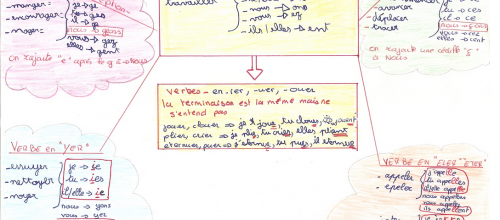 exception
- manger = je → ge
- encourager = tu → ges
il → ge
- nager = nous → geons
vous → gez
elles → gent
on rajoute "e" après le g à Nous
travailler
- nous → ons
- vous → ez
- ils / elles → ent
- avancer
- déplacer
- tracer
tu → ces
il → ce
vous → cez
elles → cent
on rajoute une cédille "ç"
à Nous
Verbes - en -ier, -uer, -ouer
la terminaison est la même mais ne
s'entend pas
jouer, clouer ⇒ je joue, tu cloues, ils jouent
plier, crier ⇒ je plie, tu cries, elles plient
éternuer, puer ⇒ j'éternue, tu pues, il éternue
VERBE en "YER"
- essuyer
- nettoyer
- noyer
je → ie
tu → ies
il/elle → ie
nous → yons
vous → yez
VERBE EN "ELER" "ETER"
- appeler
- epeler
j'appelle
tu appelles
il/elle appelle
nous appelons
vous appelez
ils appellent